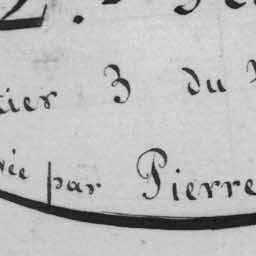 2.
tier 3 du
ée par Pierre